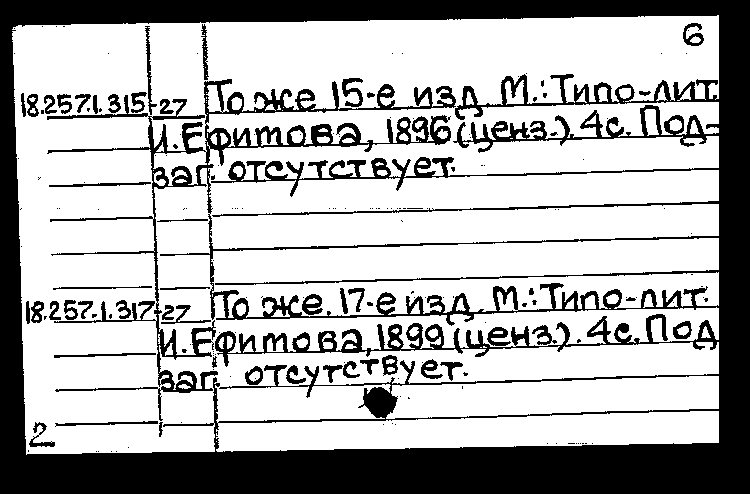 6
18.257.1.315-27 То же 15-е изд. М.: Типо-лит.
И. Ефимова, 1896 (ценз.). 4с. Под-
заг. отсутствует.
18.257.1.317-27 То же. 17-е изд. М.: Типо-лит.
И. Ефимова, 1899 (ценз.). 4с. Под
заг. отсутствует.
2